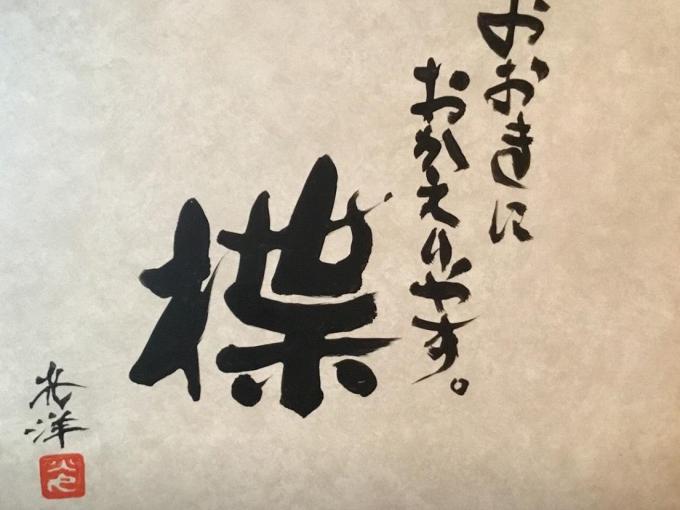 おおきに
おかえりやす。
楪
北洋